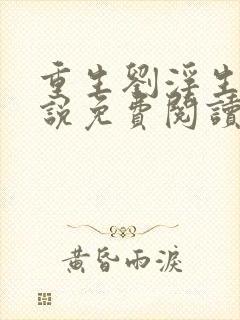 重生劉淫生
說免費閱讀
黃昏雨淚